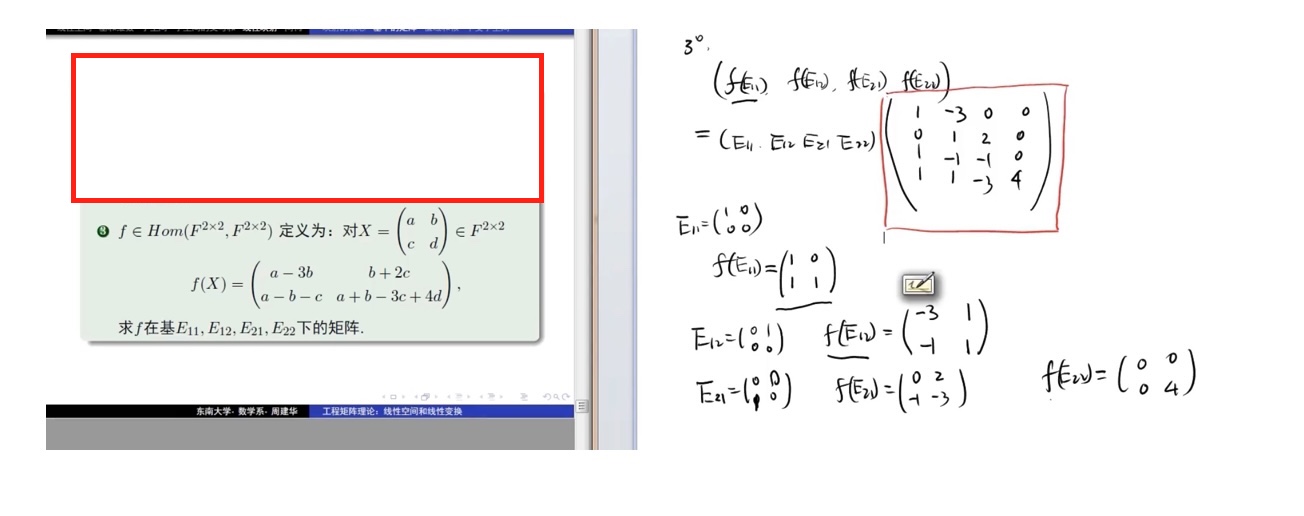 ❸ f ∈ Hom(F^{2×2}, F^{2×2}) 定义为：对X = \begin{pmatrix} a & b \\ c & d \end{pmatrix} ∈ F^{2×2}
f(X) = \begin{pmatrix} a − 3b & b + 2c \\ a − b − c & a + b − 3c + 4d \end{pmatrix},
求f在基E_{11}, E_{12}, E_{21}, E_{22}下的矩阵.
东南大学·数学系·周建华 工程矩阵理论：线性空间和线性变换
3°.
(f(E_{11}) f(E_{12}), f(E_{21}) f(E_{22}))
= (E_{11}. E_{12} E_{21} E_{22}) \begin{pmatrix} 1 & -3 & 0 & 0 \\ 0 & 1 & 2 & 0 \\ 1 & -1 & -1 & 0 \\ 1 & 1 & -3 & 4 \end{pmatrix}
E_{11} = \begin{pmatrix} 1 & 0 \\ 0 & 0 \end{pmatrix}
f(E_{11}) = \begin{pmatrix} 1 & 0 \\ 1 & 1 \end{pmatrix}
E_{12} = \begin{pmatrix} 0 & 1 \\ 0 & 0 \end{pmatrix} f(E_{12}) = \begin{pmatrix} -3 & 1 \\ -1 & 1 \end{pmatrix}
E_{21} = \begin{pmatrix} 0 & 0 \\ 1 & 0 \end{pmatrix} f(E_{21}) = \begin{pmatrix} 0 & 2 \\ -1 & -3 \end{pmatrix} f(E_{22}) = \begin{pmatrix} 0 & 0 \\ 0 & 4 \end{pmatrix}